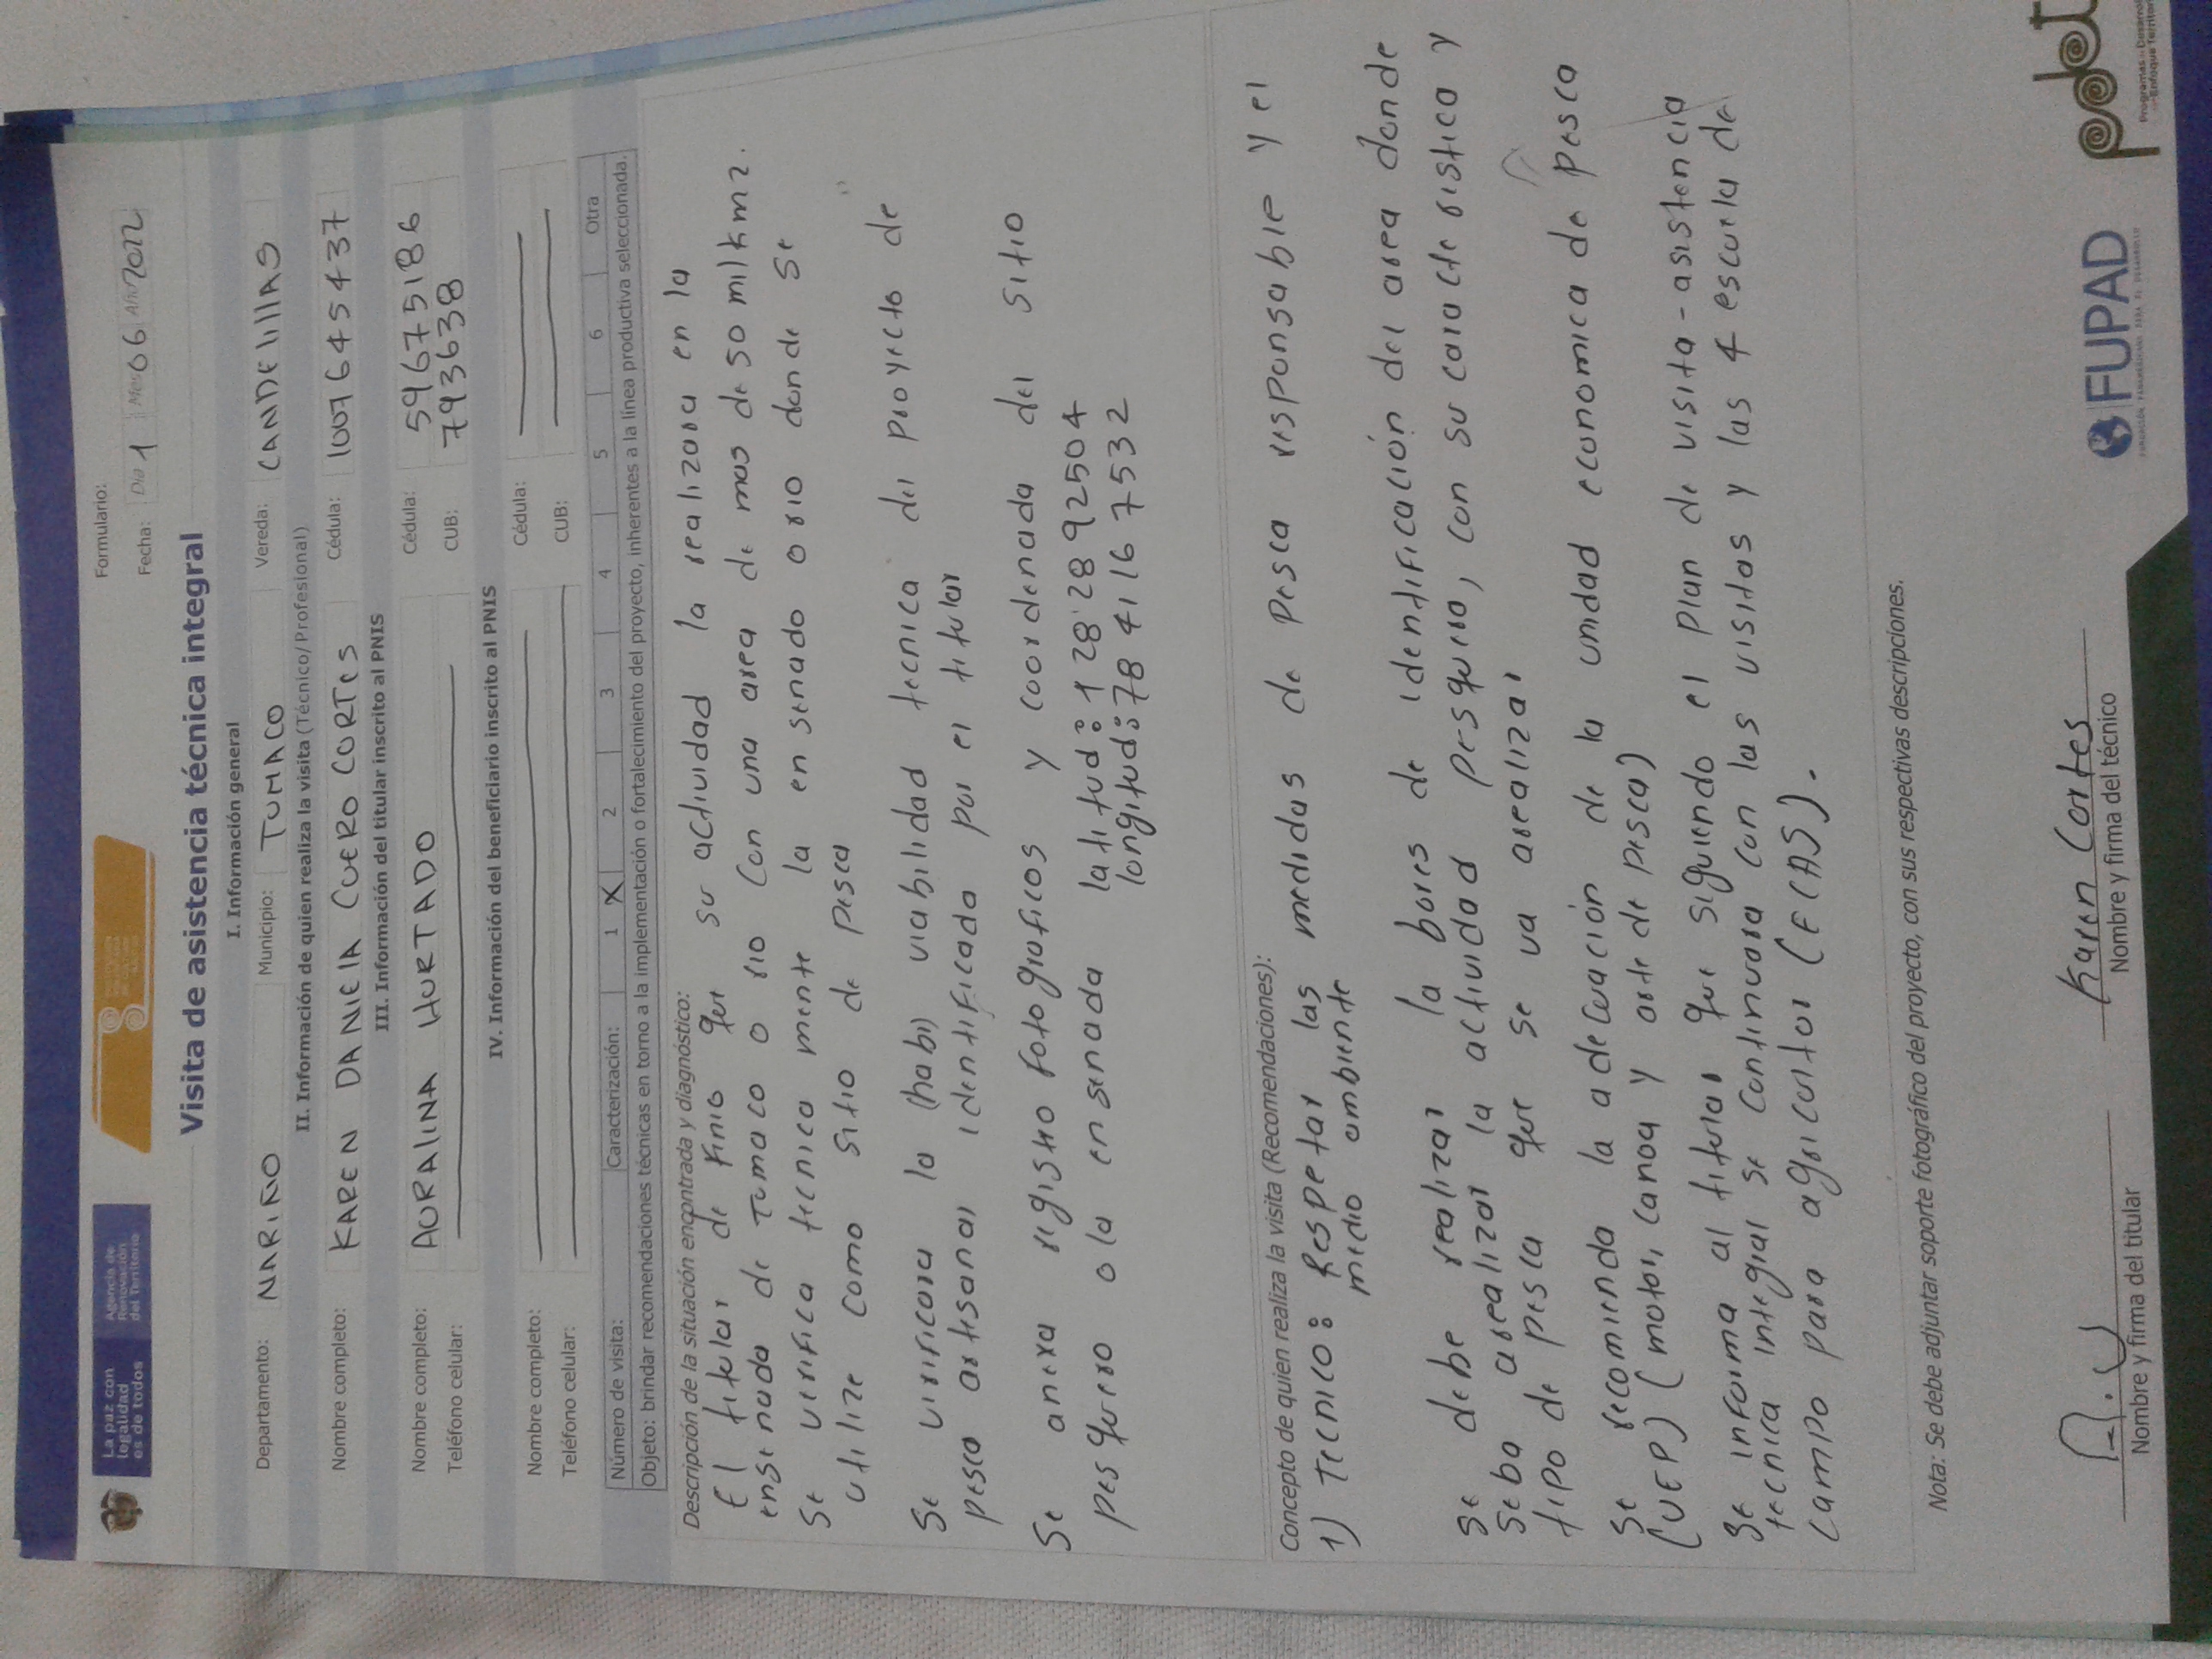 La paz con
legalidad
es de todos
Agencia de
Renovación
del Territorio
Formulario:
Fecha: Día 1 Mes 06 Año 2022
Visita de asistencia técnica integral
I. Información general
Departamento: NARIÑO Municipio: TUMACO Vereda: CANDElillAS
II. Información de quien realiza la visita (Técnico/Profesional)
Nombre completo: KAREN DANIElA CUERO CORTES Cédula: 1007645437
III. Información del titular inscrito al PNIS
Nombre completo: AURAlINA HURTADO Cédula: 59675186
Teléfono celular: CUB: 793638
IV. Información del beneficiario inscrito al PNIS
Nombre completo: Cédula:
Teléfono celular: CUB:
Número de visita: Caracterización: 1 X 2 3 4 5 6 Otra
Objeto: brindar recomendaciones técnicas en torno a la implementación o fortalecimiento del proyecto, inherentes a la línea productiva seleccionada.
Descripción de la situación encontrada y diagnóstico:
El titular de Finio que su actividad la realizara en la
ensenada de Tumaco o rio Con una area de mas de 50 mil km2.
Se verifica tecnica mente la en senado o rio donde se
utilize como sitio de pesca
Se virificara la (habi) viabilidad tecnica del proyecto de
pesca artisanal identificada por el titular
Se anexa registro fotograficos y coordenada del sitio
pesquero o la ensenada latitud: 1 28' 28 92504
longitud: 78 41 16 7532
Concepto de quien realiza la visita (Recomendaciones):
1) Tecnico: Respetar las medidas de pesca responsable y el
medio ambiente
Se debe realizar la bores de identificación del area donde
Seba arealizar la actividad pesquero, con su caracteristica y
tipo de pesca que se va arealizar
Se recomienda la adecuación de la unidad economica de pesca
(UEP) (motor, canoa y arte de pesca)
Se informa al titular que siguiendo el plan de visita-asistencia
tecnica integral se continuara con las visitas y las 4 escuela de
campo para agricultor (ECAS).
Nota: Se debe adjuntar soporte fotográfico del proyecto, con sus respectivas descripciones.
A.U
Nombre y firma del titular
Karen Cortes
Nombre y firma del técnico
FUPAD
FUNDACIÓN PANAMERICANA PARA EL DESARROLLO
pdet